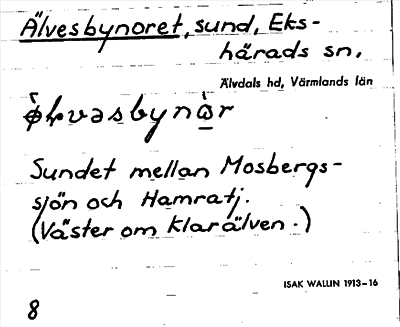 Älvesbynoret, sund, Eks-
härads sn.
Älvdals hd, Värmlands län
Sundet mellan Mosbergs-
sjön och Hamratj.
(Väster om Klarälven.)
ISAK WALLIN 1913-16
8